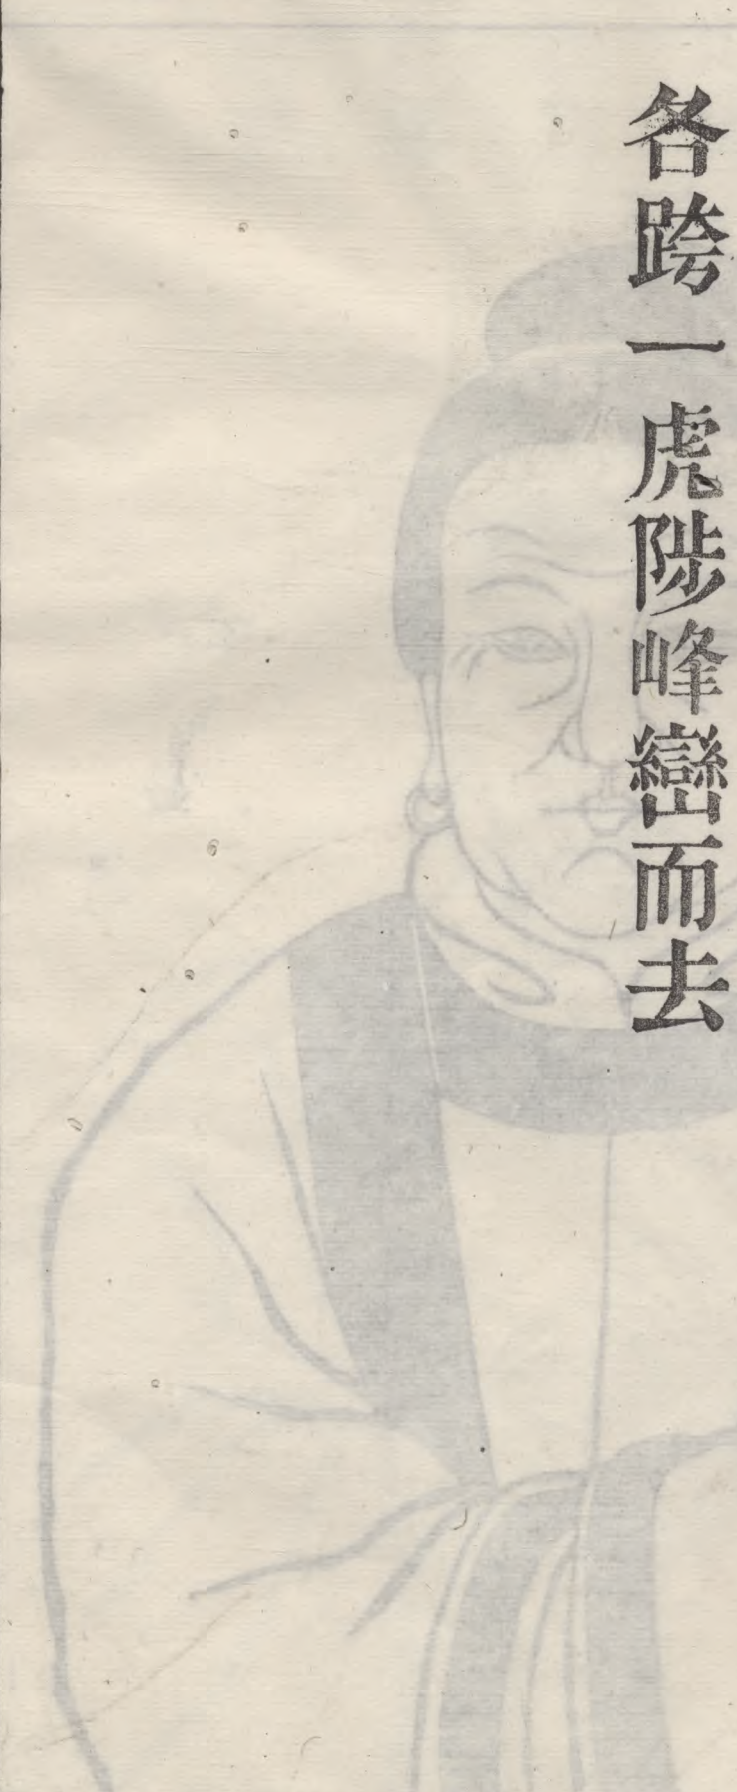 各跨一虎陟峰巒而去